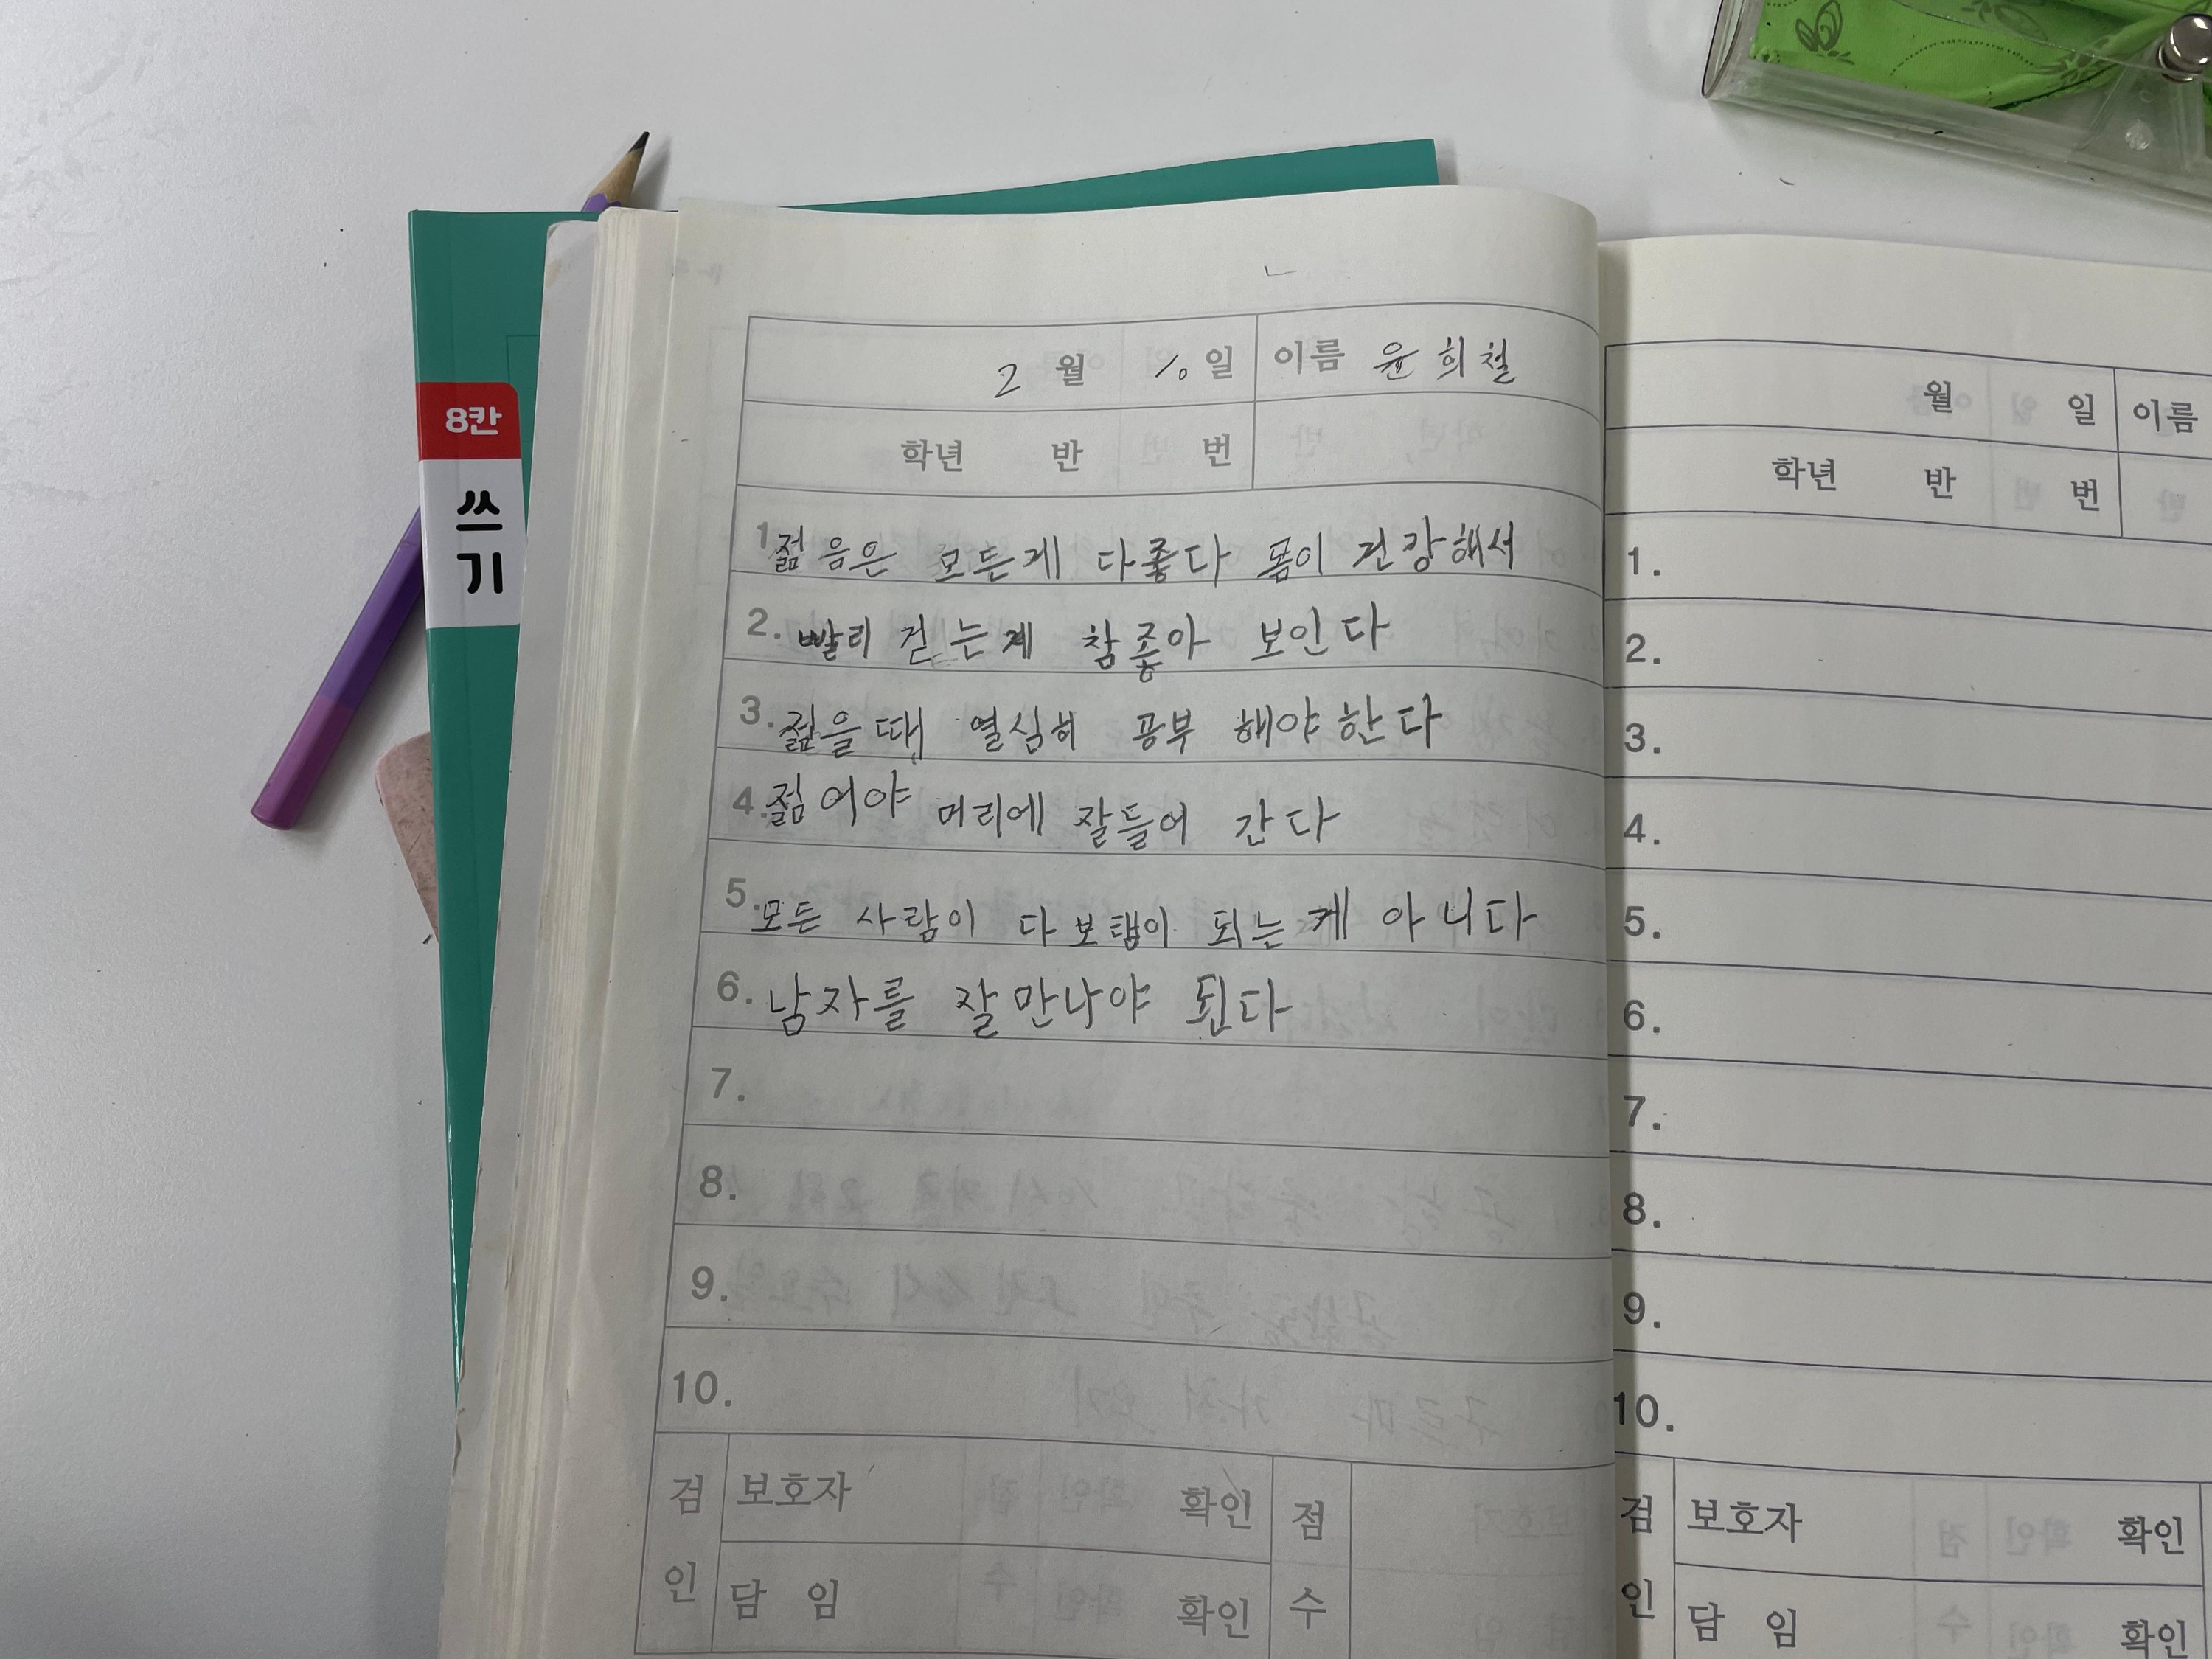 8칸
쓰
기
2 월 10 일 이름 윤희철
학년 반 번
1. 젊음은 모든게 다좋다 몸이 건강해서
2. 빨리 걷는게 참좋아 보인다
3. 젊을때 열심히 공부 해야한다
4. 젊어야 머리에 잘들어 간다
5. 모든 사람이 다 보탬이 되는게 아니다
6. 남자를 잘만나야 된다
7.
8.
9.
10.
검 인 보호자 확인 점 수
담 임 확인
월 일 이름
학년 반 번
1.
2.
3.
4.
5.
6.
7.
8.
9.
10.
검 인 보호자 확인
담 임 확인